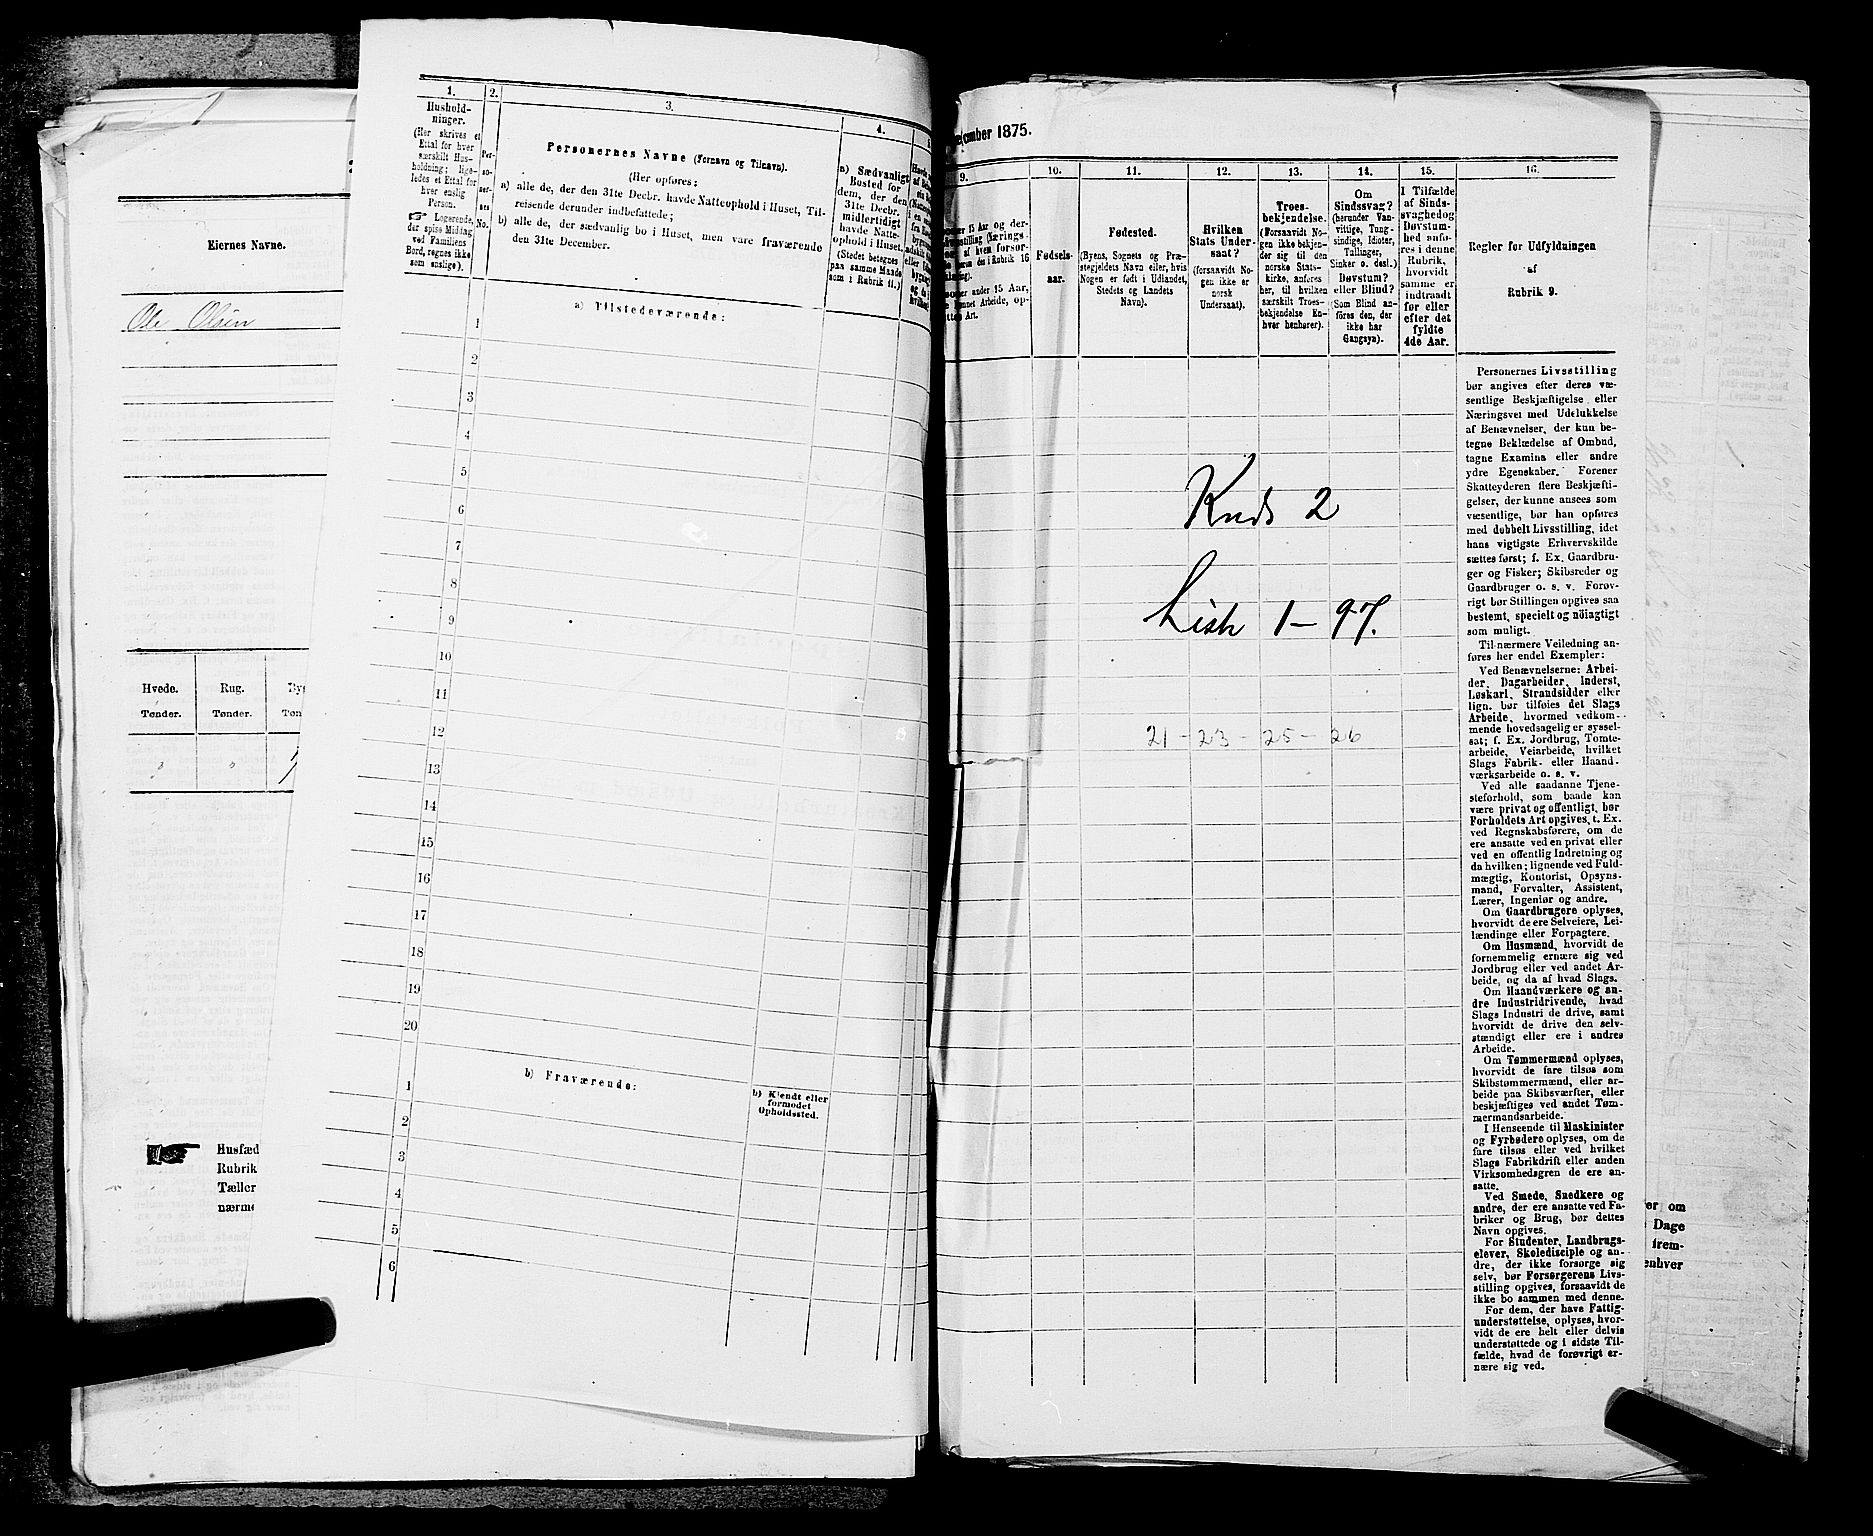 Eiernes Navne.
Ole Olsen
Hvede.
Tønder.
Rug.
Tønder.
"
"
Husfæd
Rubrik
Tæller
nærme
1.
Hushold-
ninger.
(Her skrives et
Ettal for hver
særskilt Hus-
holdning; lige-
ledes et Ettal for
hver enslig
Person.
☞ Logerende,
der spise Middag
ved Familiens
Bord, regnes ikke
som enslige).
2.
Per-
so-
ner-
nes
No.
3.
Personernes Navne (Fornavn og Tilnavn).
(Her opføres:
a) alle de, der den 31te Decbr. havde Natteophold i Huset, Til-
reisende derunder indbefattede;
b) alle de, der sædvanlig bo i Huset, men vare fraværende
den 31te December.
4.
a) Sædvanligt
Bosted for
dem, der den
31te Decbr.
midlertidigt
havde Natte-
ophold i Huset.
(Stedet betegnes
paa samme Maade
som i Rubrik 11.)
a) Tilstedeværende:
1
2
3
4
5
6
7
8
9
10
11
12
13
14
15
16
17
18
19
20
b) Fraværende:
b) Kjendt eller
formodet
Opholdssted.
1
2
3
4
5
6
cember 1875.
9.
10.
Fødsels-
aar.
11.
Fødested.
(Byens, Sognets og Præ-
stegjeldets Navn eller, hvis
Nogen er født i Udlandet,
Stedets og Landets
Navn).
12.
Hvilken
Stats Under-
saat?
(forsaavidt No-
gen ikke er
norsk
Undersaat).
13.
Troes-
bekjendelse.
(Forsaavidt No-
gen ikke bekjen-
der sig til den
norske Stats-
kirke, anføres
her, til hvilken
særskilt Troes-
bekjendelse En-
hver henhører).
14.
Om
Sindssvag?
(herunder Van-
vittige, Tung-
sindige, Idioter,
Tullinger,
Sinker o. desl.)
Døvstum?
eller Blind?
(Som Blind an-
føres den, der
ikke har
Gangsyn).
15.
I Tilfælde
af Sinds-
svaghed og
Døvstum-
hed anfø-
res i denne
Rubrik,
hvorvidt
samme er
indtraadt
før eller
efter det
fyldte
4de Aar.
16.
Regler for Udfyldningen
af
Rubrik 9.
Knds 2
List 1–97.
21 – 23 – 25 – 26
Personernes Livsstilling
bør angives efter deres væ-
sentlige Beskjæftigelse eller
Næringsvei med Udelukkelse
af Benævnelser, der kun be-
tegne Beklædelse af Ombud,
tagne Examina eller andre
ydre Egenskaber. Forener
Skatteyderen flere Beskjæfti-
gelser, der kunne ansees som
væsentlige, bør han opføres
med dobbelt Livsstilling, idet
hans vigtigste Erhvervskilde
sættes først; f. Ex. Gaardbru-
ger og Fisker; Skibsreder og
Gaardbruger o. s. v. Forøv-
rigt bør Stillingen opgives saa
bestemt, specielt og nøiagtigt
som muligt.
Til nærmere Veiledning an-
føres her endel Exempler:
Ved Benævnelserne: Arbei-
der, Dagarbeider, Inderst,
Løskarl, Strandsidder eller
lign. bør tilføies det Slags
Arbeide, hvormed vedkom-
mende hovedsagelig er syssel-
sat; f. Ex. Jordbrug, Tomte-
arbeide, Veiarbeide, hvilket
Slags Fabrik- eller Haand-
værksarbeide o. s. v.
Ved alle saadanne Tjene-
steforhold, som baade kan
være privat og offentligt, bør
Forholdets Art opgives, t. Ex.
ved Regnskabsførere, om de
ere ansatte ved en privat eller
ved en offentlig Indretning og
da hvilken; lignende ved Fuld-
mægtig, Kontorist, Opsyns-
mand, Forvalter, Assistent,
Lærer, Ingeniør og andre.
Om Gaardbrugere oplyses,
hvorvidt de ere Selveiere, Lei-
lændinge eller Forpagtere.
Om Husmænd, hvorvidt de
fornemmelig ernære sig ved
Jordbrug eller ved andet Ar-
beide, og da af hvad Slags.
Om Haandværkere og an-
dre Industridrivende, hvad
Slags Industri de drive, samt
hvorvidt de drive den selv-
stændigt eller ere i andres
Arbeide.
Om Tømmermænd oplyses,
hvorvidt de fare tilsøs som
Skibstømmermænd, eller ar-
beide paa Skibsværfter, eller
beskjæftiges ved andet Tøm-
mermandsarbeide.
I Henseende til Maskinister
og Fyrbødere oplyses, om de
fare tilsøs eller ved hvilket
Slags Fabrikdrift eller anden
Virksomhedsgren de ere an-
satte.
Ved Smede, Snedkere og
andre, der ere ansatte ved Fa-
briker og Brug, bør dettes
Navn opgives.
For Studenter, Landbrugs-
elever, Skoledisciple og an-
dre, der ikke forsørge sig
selv, bør Forsørgerens Livs-
stilling opgives, forsaavidt de
ikke bo sammen med denne.
For dem, der have Fattig-
understøttelse, oplyses, hvor-
vidt de ere helt eller delvis
understøttede og i sidste Til-
fælde, hvad de forøvrigt er-
nære sig ved.
er om
Dage
frem-
enhver